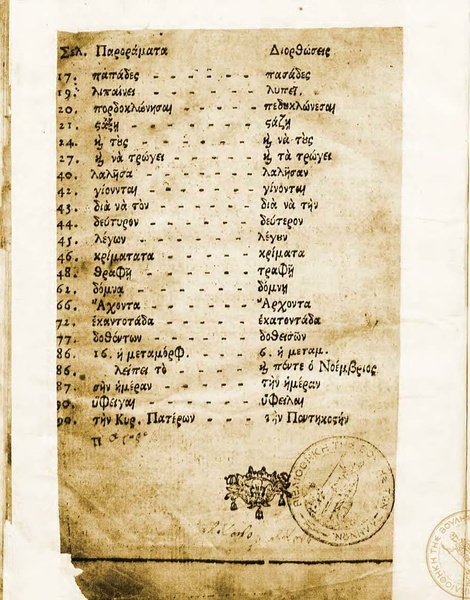 Σελ. Παροράματα Διορθώσεις
17. παπάδες - - - - - πασάδες
19. λιπαίνει - - - - - λυπεῖ.
20. πορδοκλώνησαι - - - - πεδικλώνεσαι
21. ϛάζῃ - - - - - ϛάζῃ
24. ϗ τȣς - - - - - ϗ νὰ τȣς
27. ϗ νὰ τρώγει - - - - ϗ τὰ τρώγει
40. λαλῆσα - - - - - λαλῆσαν
42. γίοννται - - - - - γίνονται
43. διὰ νὰ τὸν - - - - διὰ νὰ τὴν
44. δεύτυρον - - - - - δεύτερον
45. λέγων - - - - - λέγȣν
46. κρίματατα - - - - κρίματα
48. θραφῇ - - - - - τραφῇ
62. δόμνα - - - - - δόμνη
66. Ἄχοντα - - - - - Ἄρχοντα
72. ἑκαντοτάδα - - - - ἑκατοντάδα
77. δοθόντων - - - - δοθεισῶν
86. 16. ἡ μεταμόρφ. 6. ἡ μεταμ.
86. λείπει τὸ ϗ πόντε ὁ Νοέμβριος
87. σὴν ἡμέραν - - - τὴν ἡμέραν
90. ὑφείγαι - - - - ὑφεῖλαι
90. τὴν Κυρ. Πατέρων - - - τὴν Πεντηκοςήν
ΒΙΒΛΙΟΘΗΚΗ ΤΗΣ ΒΟΥΛΗΣ ΤΩΝ ΕΛΛΗΝΩΝ
ΒΙΒΛΙΟΘΗΚΗ ΤΗΣ ΒΟΥΛΗΣ